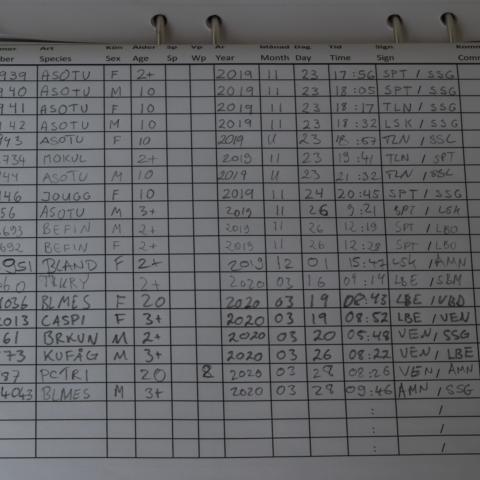 mmer Art Kön Ålder Sp Vp År Månad Dag Tid Sign Komm
mber Species Sex Age Sp Wp Year Month Day Time Sign Comm
939 ASOTU F 2+ 2019 11 23 17:56 SPT / SSG
940 ASOTU M 10 2019 11 23 18:05 SPT / SSG
941 ASOTU F 10 2019 11 23 18:17 TLN / SSG
942 ASOTU M 10 2019 11 23 18:32 LSK / SSG
943 ASOTU F 10 2019 11 23 18:57 TLN / SSL
734 MOKUL 2+ 2019 11 23 19:41 TLN / SPT
944 ASOTU M 10 2019 11 23 21:32 TLN / SSL
946 JOUGG F 10 2019 11 24 20:45 SPT / SSG
56 ASOTU M 3+ 2019 11 26 9:21 SPT / LSK
693 BEFIN M 2+ 2019 11 26 12:19 SPT / LBO
692 BEFIN F 2+ 2019 11 26 12:28 SPT / LBO
951 BLAND F 2+ 2019 12 01 15:42 LSK / AMN
060 2+ 2020 03 16 09:14 LBE / SLM
4036 BLMES F 20 2020 03 19 08:43 LBE / VBD
2013 CASPI F 3+ 2020 03 19 08:52 LBE / VEN
61 BRKUN M 2+ 2020 03 20 05:48 VEN / SSG
73 KUFÅG M 3+ 2020 03 26 08:22 VEN / LBE
87 PCTRI 20 2 2020 03 28 08:26 VEN / AMN
4043 BLMES M 3+ 2020 03 28 09:46 AMN / SSG
: /
: /
: /